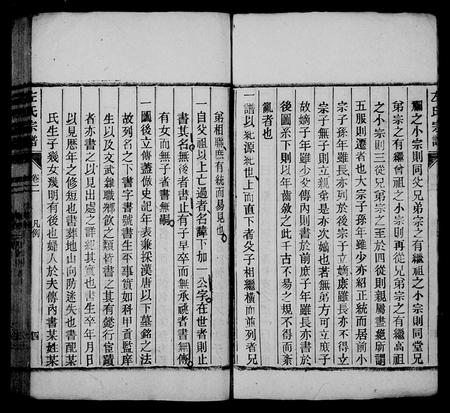 禰之小宗則同父兄弟宗之有繼祖之小宗則同堂兄
弟宗之有繼曾祖之小宗則再從兄弟宗之有繼高祖
之小宗則三從兄弟宗之至於四從則親屬盡絕所謂
五服則遷者也大宗子孫年雖少亦紹正統而居前小
宗子孫年雖長亦列於後宗子立嫡庶雖長亦不得立
宗子無子則立親弟是亦次嫡也若無弟方可立庶子
故嫡子年雖少於傳內則書於前庶子年雖長亦書於
後圖系下則以年齒敘之此千古不易之規不得而紊
亂者也
一譜以紀源紀世上而直下者父子相繼橫而並列者兄
弟相聯應有統而易見也
一自父祖以上亡過者名諱下加一公字在世者則止
書其名無後者書止有子早卒而無承祧者書無傳
有女而無子者書無嗣
一圖後立傳蓋倣史記年表兼採漢唐以下墓銘之法
故列名之下書字書號書生平事實如科甲貢監庠
生以及文武雜職增飲之類皆書之其有懿行宦蹟
者亦書之以見出處之詳經其實也書生卒年月日
以見歷年之修短也書葬地山向防迷失也書配某
氏生子幾女幾明有後也婦人於夫傳內書某姓來
左氏宗譜
卷一
凡例
四